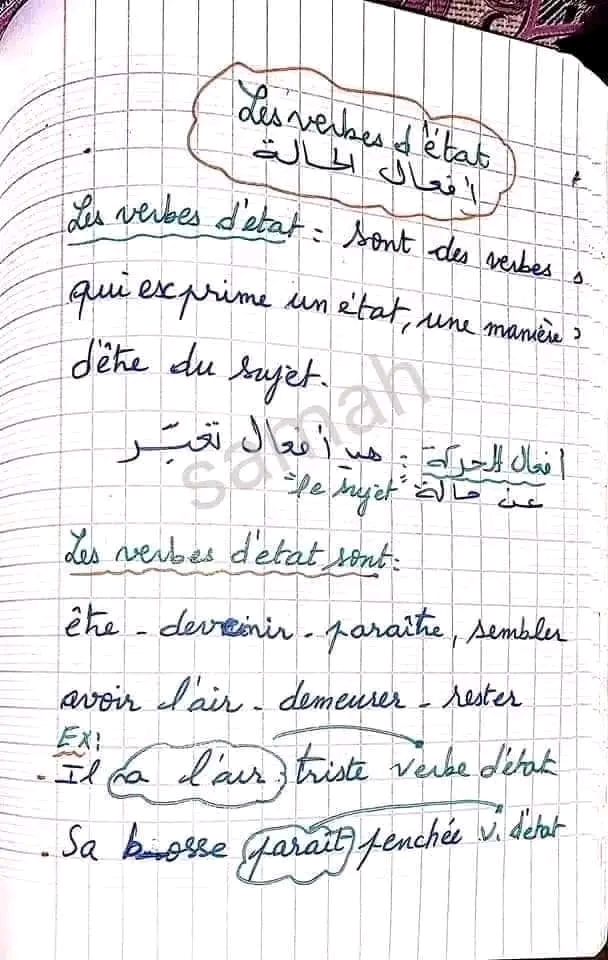 Les verbes d'état
أفعال الحالة
Les verbes d'état : sont des verbes
qui exprime un état, une manière
d'être du sujet.
افعال الحركة : هي أفعال تعبّر
عن حالة "le sujet"
samah
Les verbes d'état sont :
être - devenir - paraître, sembler
avoir l'air - demeurer - rester
Ex:
. Il a l'air triste verbe d'état
. Sa bosse parait penchée v. d'état